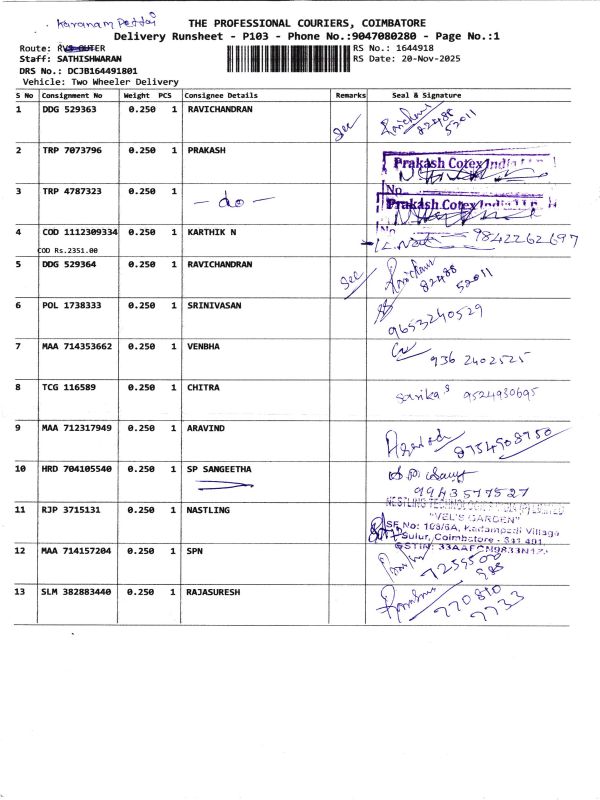 Karanam Pettai
THE PROFESSIONAL COURIERS, COIMBATORE
Delivery Runsheet - P103 - Phone No.:9047080280 - Page No.:1
Route: RVS OUTER
RS No.: 1644918
Staff: SATHISHWARAN
RS Date: 20-Nov-2025
DRS No.: DCJB164491801
Vehicle: Two Wheeler Delivery
S No Consignment No Weight PCS Consignee Details Remarks Seal & Signature
1 DDG 529363 0.250 1 RAVICHANDRAN sec 82488
52011
2 TRP 7073796 0.250 1 PRAKASH Prakash Cotex India
3 TRP 4787323 0.250 1 - do - Prakash Cotex India
4 COD 1112309334 0.250 1 KARTHIK N 9842262697
COD Rs.2351.00
5 DDG 529364 0.250 1 RAVICHANDRAN sec 82488
52011
6 POL 1738333 0.250 1 SRINIVASAN 9653240529
7 MAA 714353662 0.250 1 VENBHA 936 2402525
8 TCG 116589 0.250 1 CHITRA Sarika.S 9524930695
9 MAA 712317949 0.250 1 ARAVIND 8754908750
10 HRD 704105540 0.250 1 SP SANGEETHA
9943577527
11 RJP 3715131 0.250 1 NASTLING
"VEL'S GARDEN"
SF No: 168/6A, Kadampadi Village
Sulur, Coimbatore - 641 401.
12 MAA 714157204 0.250 1 SPN 7259500
985
13 SLM 382883440 0.250 1 RAJASURESH 770810
7733